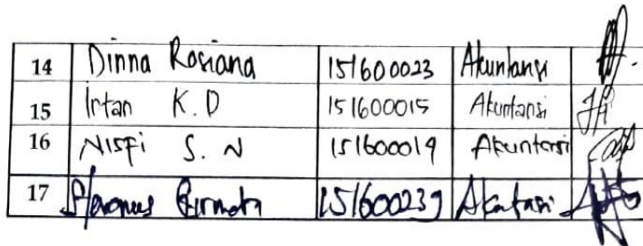 14 Dinna Rosiana 151600023 Akuntansi
15 Irfan K.D 151600015 Akuntansi
16 Nisfi S. N 151600019 Akuntansi
17 151600239 Akutansi